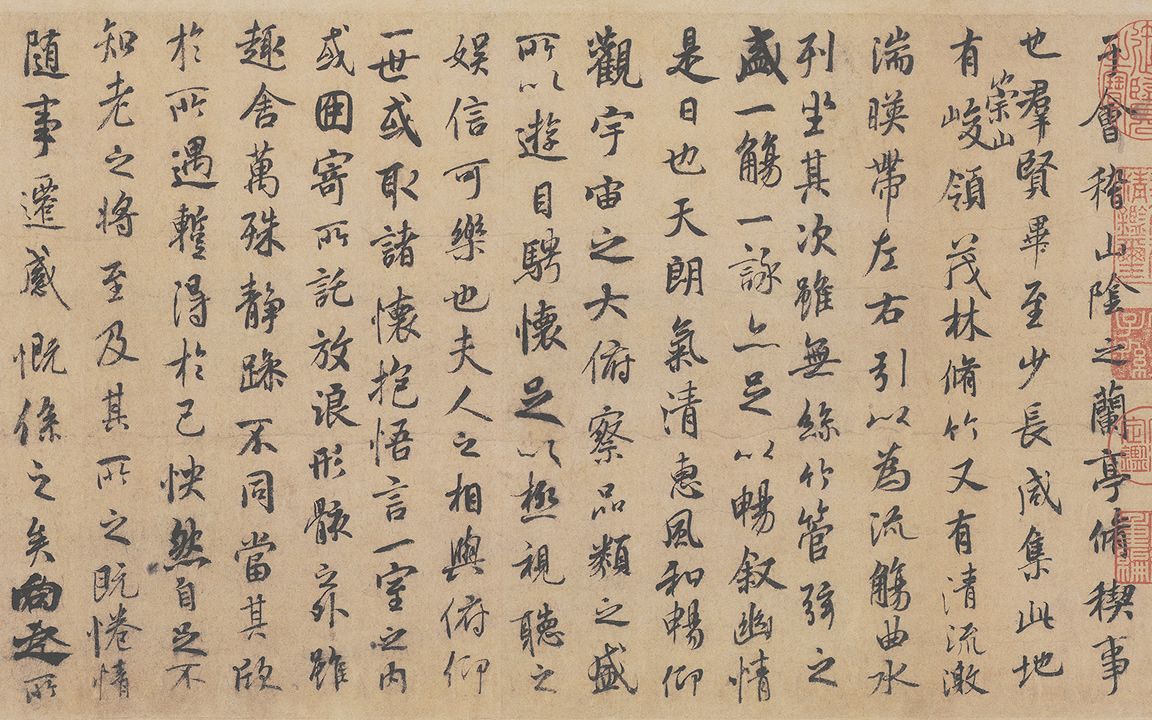 于會稽山陰之蘭亭脩稧事
也羣賢畢至少長咸集此地
有崇山峻領茂林脩竹又有清流激
湍暎帶左右引以為流觴曲水
列坐其次雖無絲竹管弦之
盛一觴一詠亦足以暢叙幽情
是日也天朗氣清惠風和暢仰
觀宇宙之大俯察品類之盛
所以遊目騁懷足以極視聽之
娛信可樂也夫人之相與俯仰
一世或取諸懷抱悟言一室之內
或因寄所託放浪形骸之外雖
趣舍萬殊靜躁不同當其欣
於所遇蹔得於己怏然自足不
知老之將至及其所之既惓情
隨事遷感慨係之矣向之所